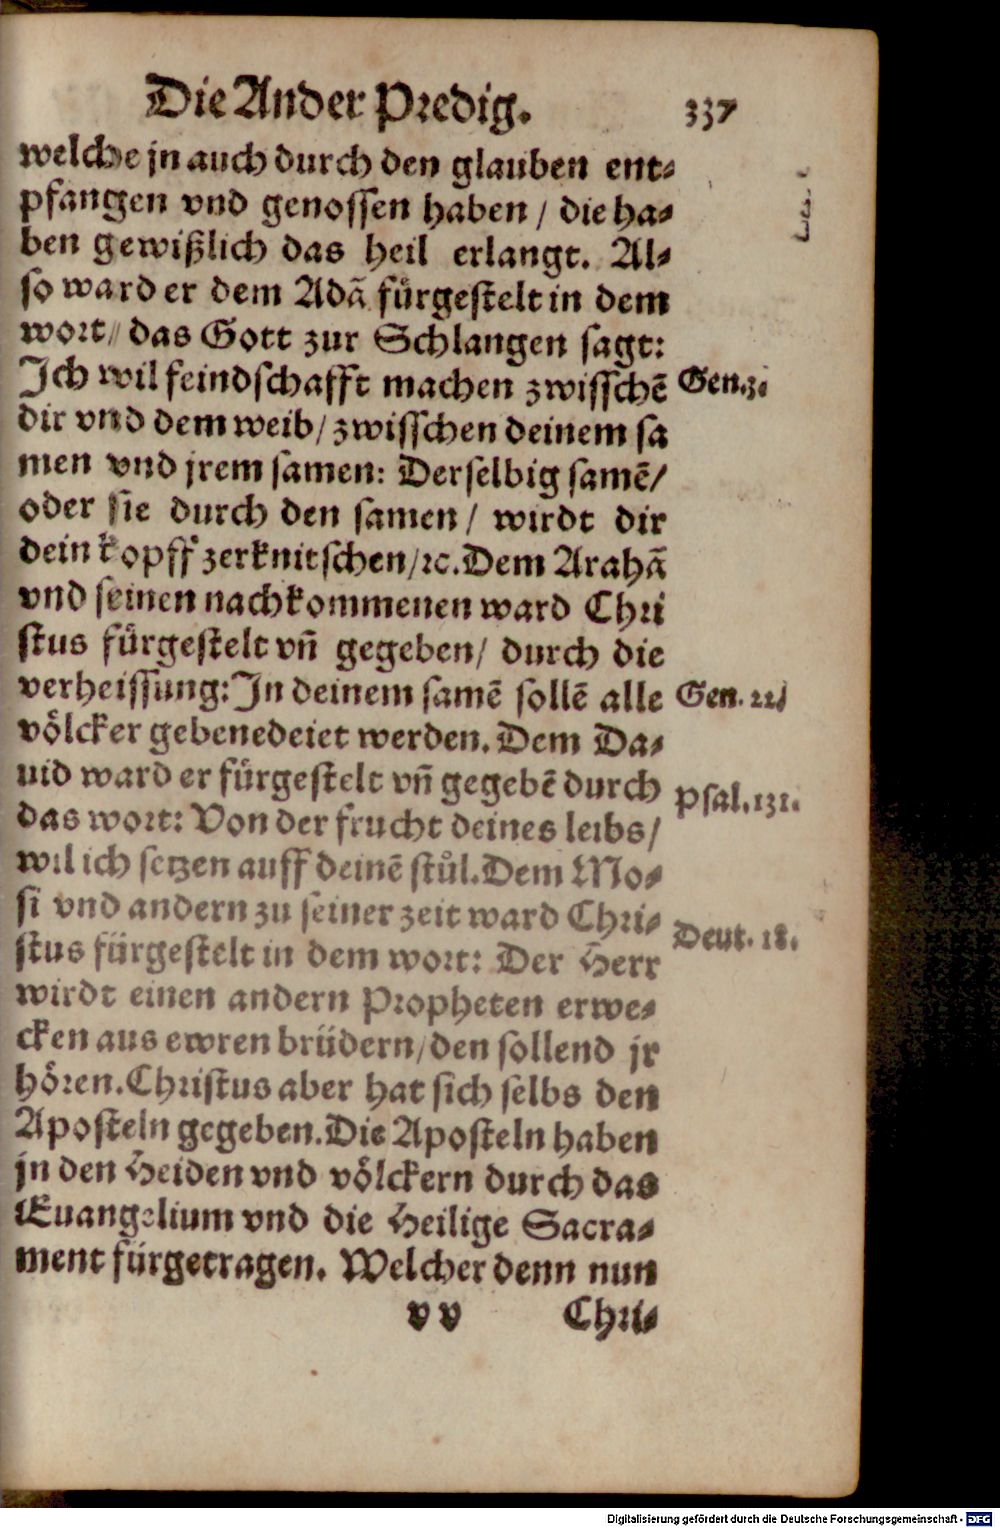 Die Ander Predig. 337
welche jn auch durch den glauben ent⸗
pfangen vnd genossen haben / die ha⸗
ben gewißlich das heil erlangt. Al⸗
so ward er dem Adã fürgestelt in dem
wort / das Gott zur Schlangen sagt:
Ich wil feindschafft machen zwisschẽ Gen.3.
dir vnd dem weib / zwisschen deinem sa
men vnd jrem samen: Derselbig samẽ /
oder sie durch den samen / wirdt dir
dein kopff zerknitschen / ꝛc. Dem Arahã
vnd seinen nachkommenen ward Chri
stus fürgestelt vñ gegeben / durch die
verheissung: In deinem samẽ sollẽ alle Gen. 22.
völcker gebenedeiet werden. Dem Da⸗
uid ward er fürgestelt vñ gegebẽ durch
das wort: Von der frucht deines leibs / Psal.131.
wil ich setzen auff deinẽ stůl. Dem Mo⸗
si vnd andern zu seiner zeit ward Chri⸗
stus fürgestelt in dem wort: Der Herr Deut. 18.
wirdt einen andern Propheten erwe⸗
cken aus ewren brüdern / den sollend jr
hören. Christus aber hat sich selbs den
Aposteln gegeben. Die Aposteln haben
jn den Heiden vnd völckern durch das
Euangelium vnd die Heilige Sacra⸗
ment fürgetragen. Welcher denn nun
v v Chri⸗
Digitalisierung gefördert durch die Deutsche Forschungsgemeinschaft - DFG